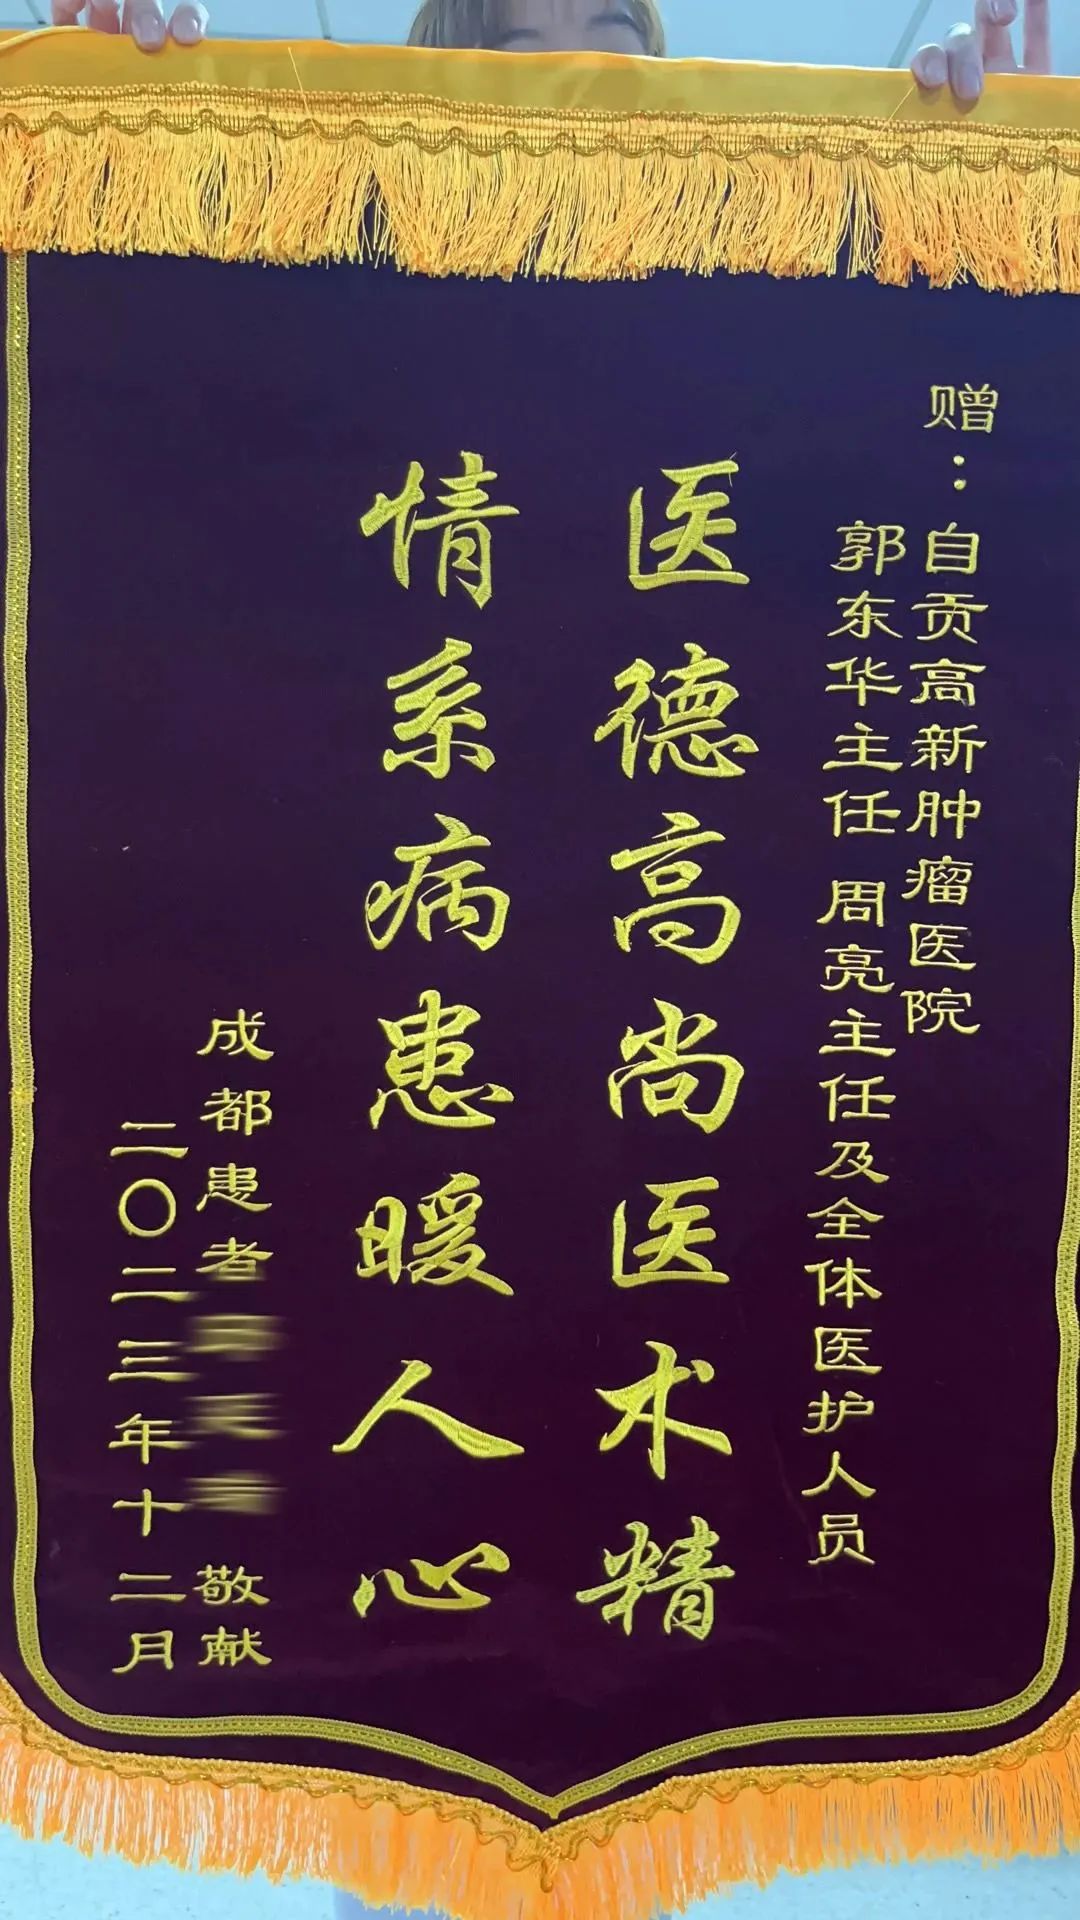 赠：自贡高新肿瘤医院
郭东华主任 周亮主任及全体医护人员
医德高尚医术精
情系病患暖人心
成都患者 敬献
二〇二三年十二月